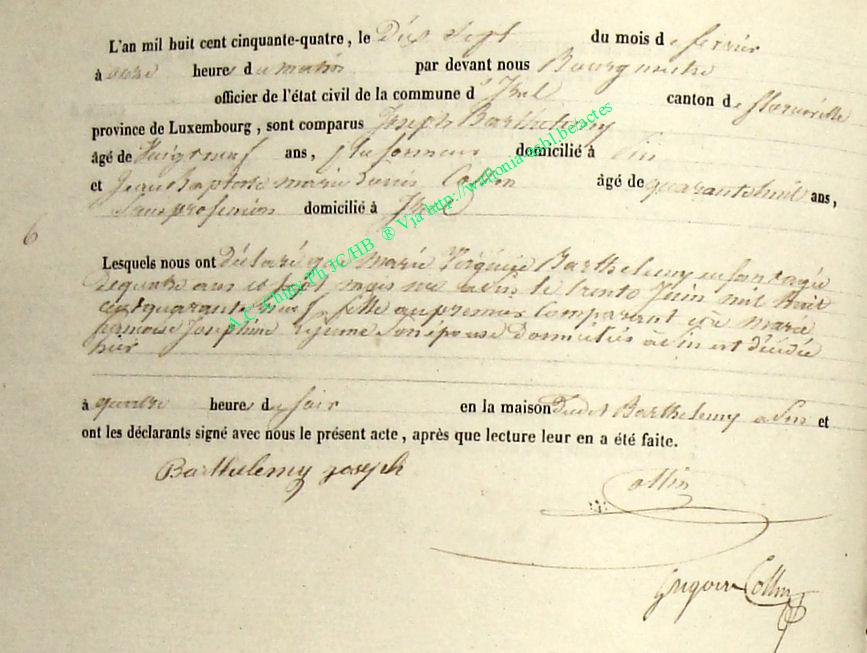 L'an mil huit cent cinquante-quatre, le Dix Sept du mois de fevrier
à onze heures du matin par devant nous Bourgmestre
officier de l'état civil de la commune d'Izel canton de florenville
province de Luxembourg, sont comparus Joseph Barthelemy
âgé de Vingt neuf ans, domicilié à
et Jean Baptiste marie Collin âgé de quarante huit ans,
Sans profession domicilié à Izel
6
Lesquels nous ont Déclaré que marie Virginie Barthelemy enfant agée
de quatre ans et huit mois né le trente Juin mil huit
cent quarante neuf fille au premier Comparant et de marie
Josephine Son épouse Domiciliés est décédée
hier
à quatre heures du soir en la maison Dudit Barthelemy et
ont les déclarants signé avec nous le présent acte, après que lecture leur en a été faite.
Barthelemy Joseph
Collin
Collin
A.C. Chiny Ph JCHB ® Via http://wallonia-asbl.be:actes